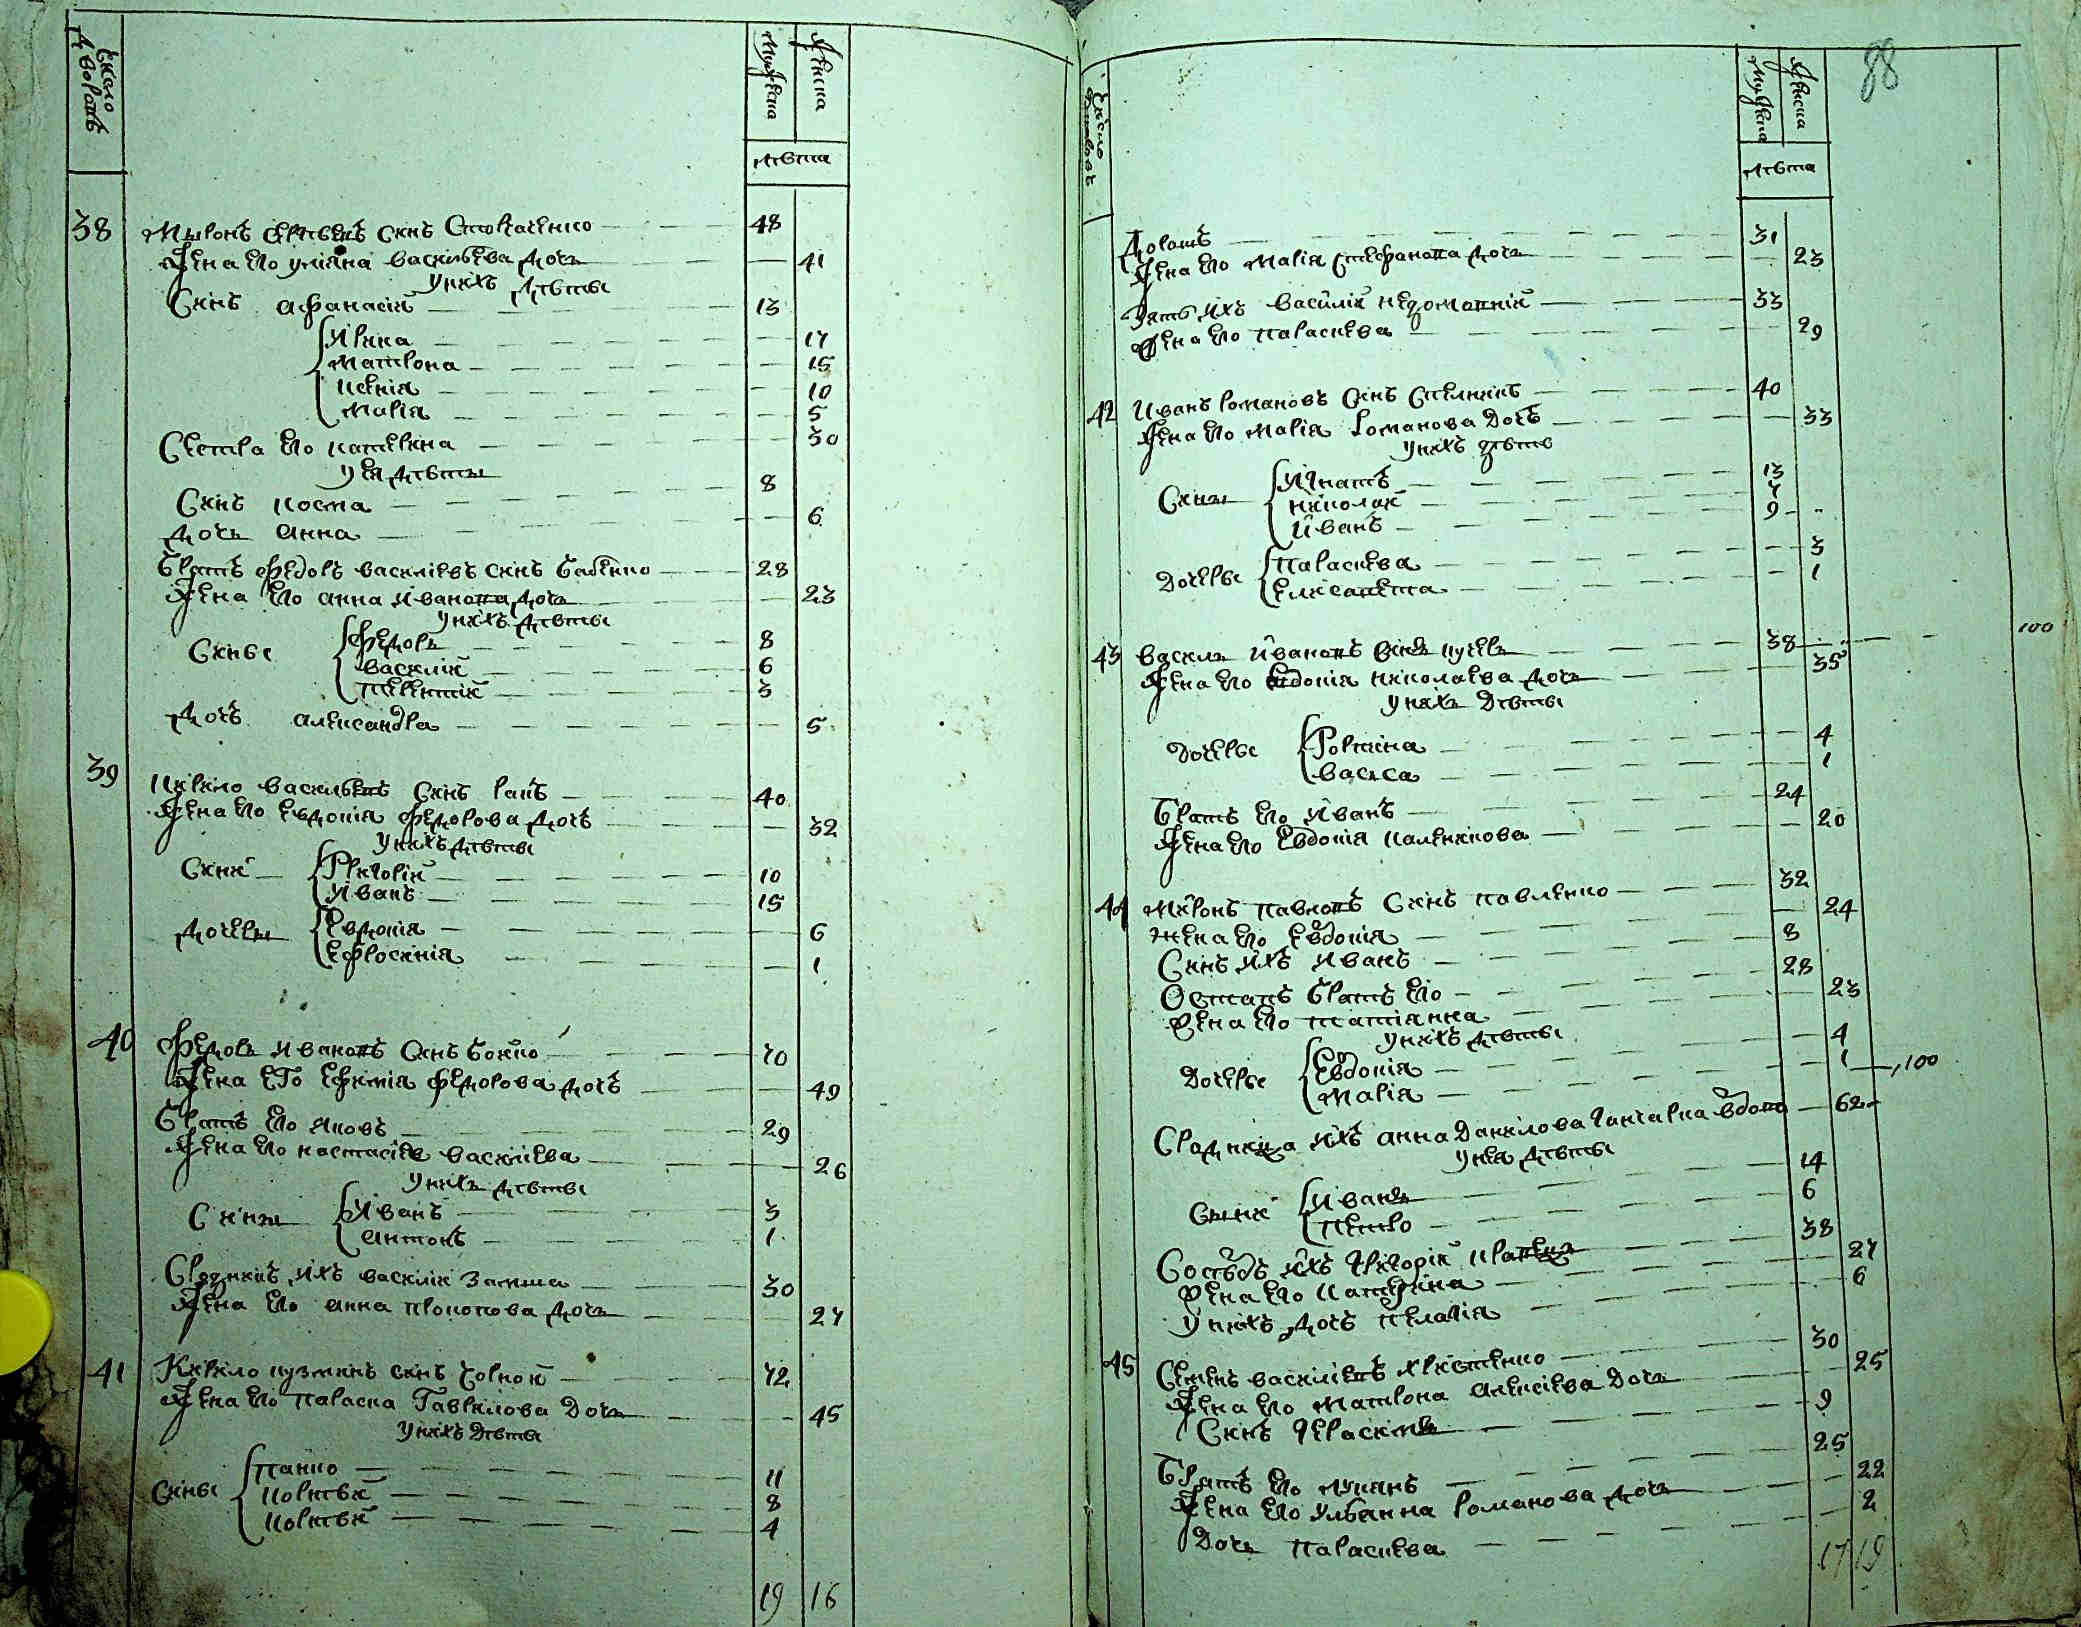 Число дворовъ
Мужеска
Женска
Лѣта
38 Миронъ сынъ 48
Жена его улияна василева дочь 41
У нихъ дѣти
Синъ Афанасій 13
Ирина 17
Матрона 15
Ксенія 10
Марія 5
Сестра его катерина 30
У ея дѣти
Синъ коста 8
Дочь Анна 6
Братъ федоръ василіевъ синъ 28
Жена его анна иванова дочь 23
У нихъ дѣти
Сини федоръ 8
василій 6
терентій 3
Дочъ александра 5
39 Кирило василѣевъ Синъ 40
Жена его евдокія федорова дочъ 32
У нихъ дѣти
Сини Григорій 10
Иванъ 15
Дочери Евдокія 6
Ефросинія 1
40 Федоръ Ивановъ Синъ бойко 70
Жена его ефимія федорова дочъ 49
Братъ его яковъ 29
Жена его настасія василіева 26
У нихъ дѣти
Сини Иванъ 3
Антонъ 1
Сродникъ ихъ василій 30
Жена его анна прокопова дочь 27
41 Кирило кузминъ синъ чорной 72
Жена его параска Гаврилова Дочь 45
У нихъ Дѣти
Сини панко 11
кориѣй 8
кориѣй 4
19 16
88
Число дворовъ
Мужеска
Женска
Лѣта
31
Жена его Марія стефанова дочь 23
Зять ихъ василій 33
Жена его параскева 29
42 Иванъ романовъ Синъ 40
Жена его Марія Романова Дочъ 33
У нихъ дѣти
Сини Игнатъ 13
николай 7
Иванъ 9
Дочери параскева 3
Елисавета 1
43 Василь Ивановъ Синъ 38
100
Жена его Евдокія николаева дочь 35
У нихъ Дѣти
Дочери 4
васса 1
Братъ его Иванъ 24
Жена его Евдокія 20
44 Миронъ павловъ Синъ павленко 32
Жена его Евдокія 24
Синъ ихъ Иванъ 8
Остапъ братъ его 28
Жена его татіянна 23
У нихъ дѣти
Дочери Евдокія 4
Марія 1 100
Сродница ихъ анна Данилова вдова 62
У нея дѣти
Сыни Иванъ 14
петро 6
Сосѣдъ ихъ Григорій 38
Жена его катерина 27
У нихъ дочъ пелагія 6
45 Семенъ василіевъ 30
Жена его Матрона алексіева Дочь 25
Синъ Герасимъ 9
Братъ его лукянъ 25
Жена его улѣянна Романова дочь 22
Дочь параскева 2
17 19